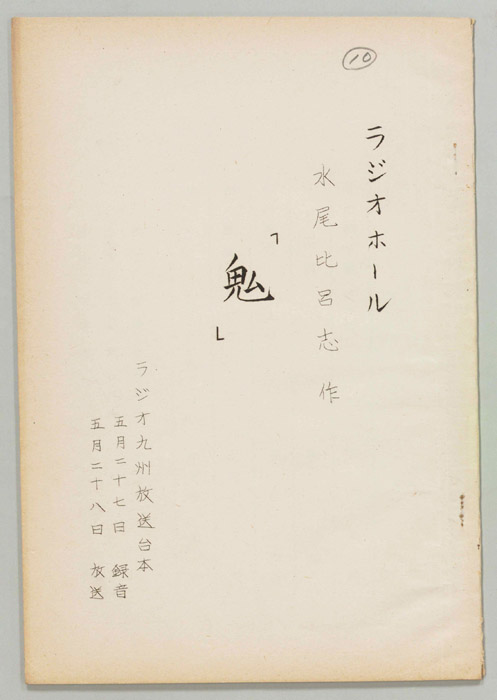 ⑩
ラジオホール
水尾比呂志 作
「鬼」
ラジオ九州放送台本
五月二十七日 録音
五月二十八日 放送